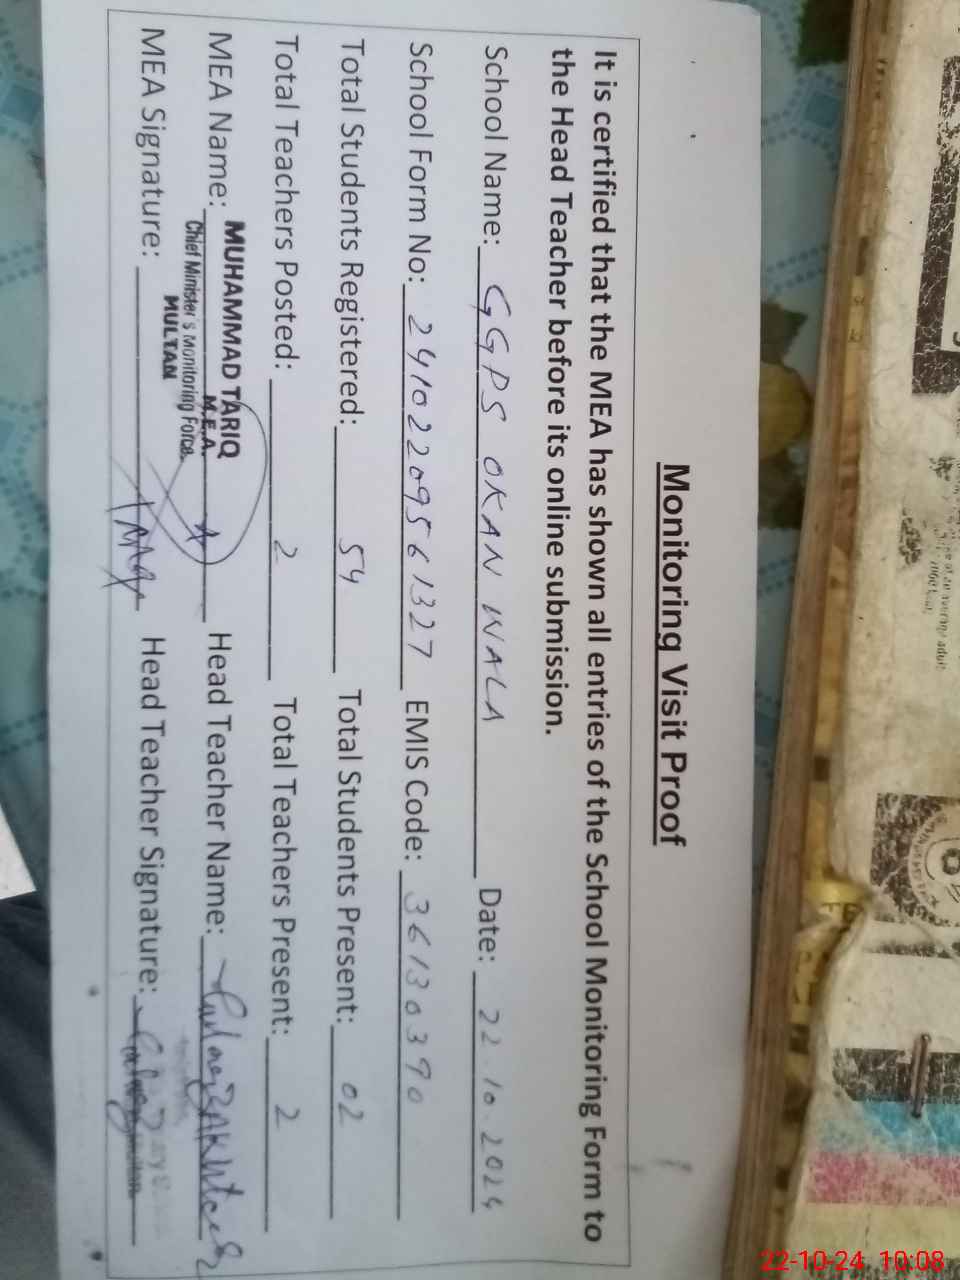 Monitoring Visit Proof
It is certified that the MEA has shown all entries of the School Monitoring Form to
the Head Teacher before its online submission.
School Name: GGPS OKAN WALA Date: 22.10.2024
School Form No: 24102209561327 EMIS Code: 36130390
Total Students Registered: 54 Total Students Present: 02
Total Teachers Posted: 2 Total Teachers Present: 2
MEA Name: MUHAMMAD TARIQ Head Teacher Name:
M.E.A.
Chief Minister's Monitoring Force
MULTAN
MEA Signature: Head Teacher Signature:
22-10-24 10:08